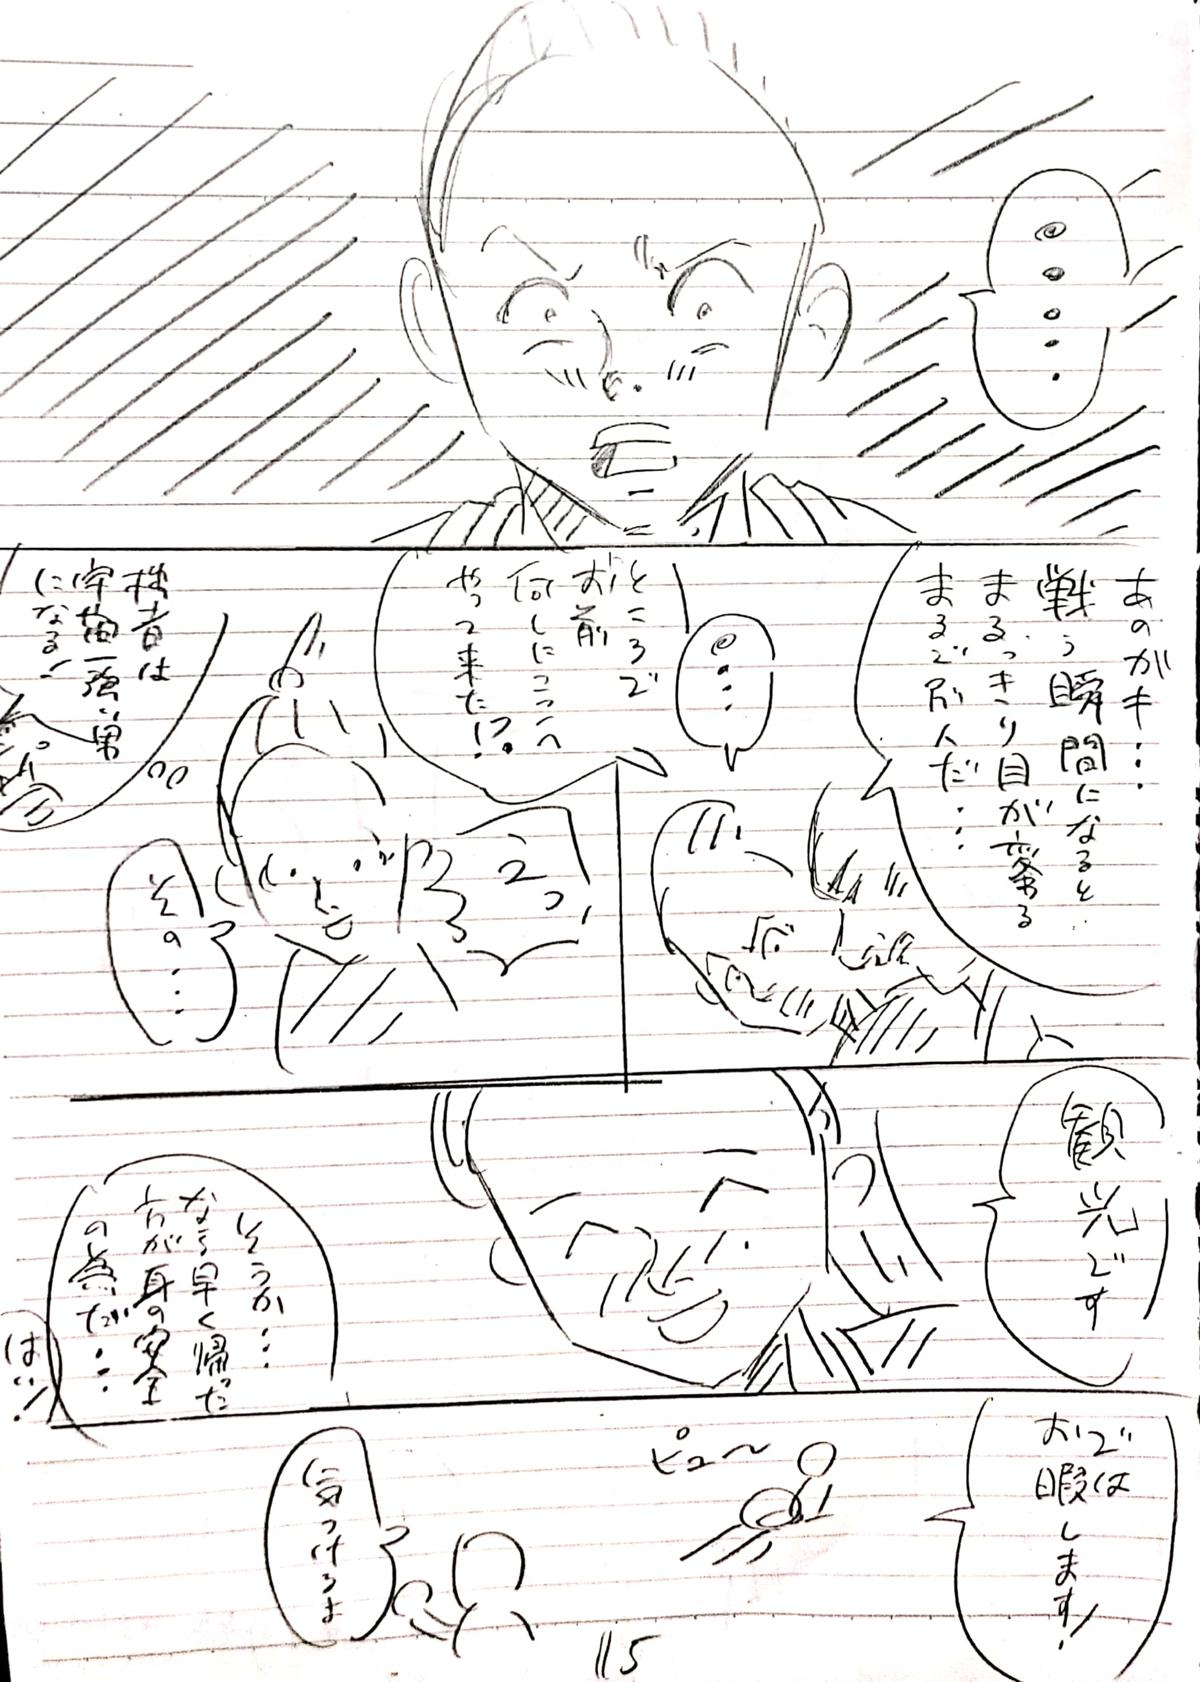 あのガキ…
戦う瞬間になると
まるっきり目が変る
まるで別人だ…
ところで
お前
何しにここへ
やって来た!?
えっ
拙者は
宇宙一強い男
になる!
その…
観光です
そうか…
なら早く帰った
方が身の安全
の為だ…
はい!
おで
暇はします!
ピュ〜
気つけろよ
115